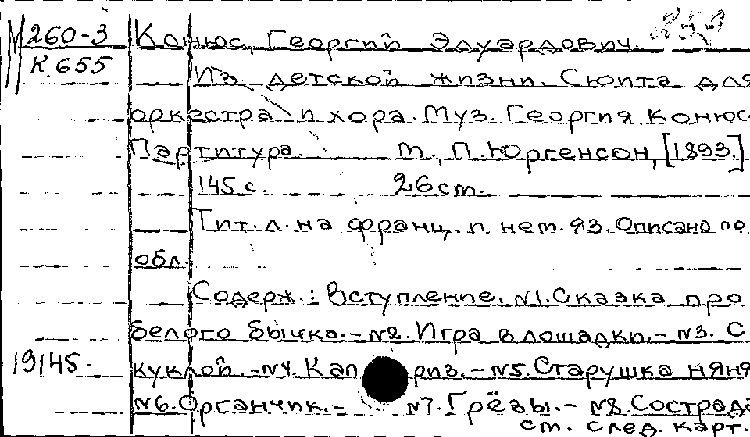 М 260-3 Конюс, Георгий Эдуардович.
К 655
Из детской жизни. Сюита для
оркестра и хора. Муз. Георгия Конюс
Партитура. М., П. Юргенсон, [1893.]
145 с. 26 см.
Тит. л. на франц. и нем. яз. Описано по
обл.
Содерж.: Вступление. №1. Сказка про
белого бычка. - №2. Игра в лошадки. - №3. С
19145- куклой. - №4. Кап риз. - №5. Старушка няня
№6. Органчик. - №7. Грёзы. - №8. Сострада
см. след. карт.